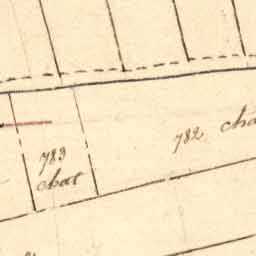 783
chat
782 cha